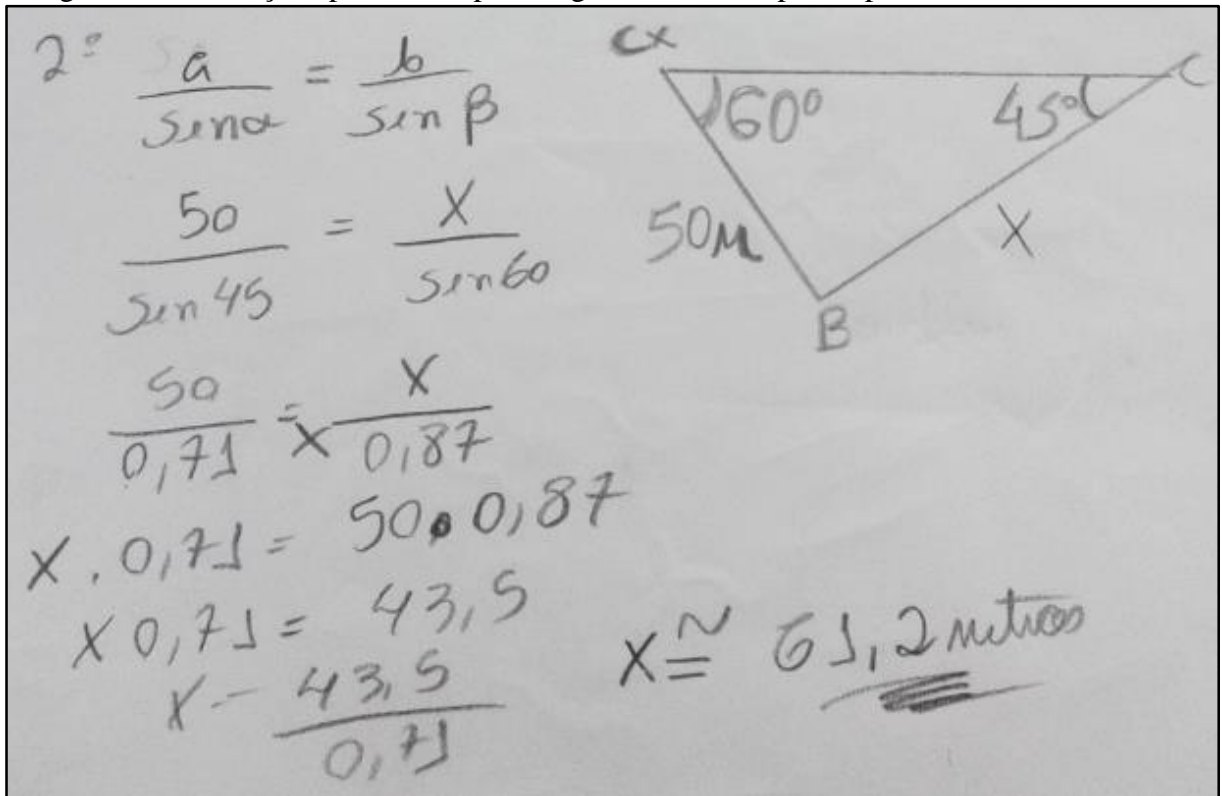 2º a/sen α = b/sen β
50/sen 45 = x/sen 60
50/0,71 = x/0,87
x . 0,71 = 50 . 0,87
x 0,71 = 43,5
x - 43,5/0,71
x ≅ 61,2 metros
α C
60° 45°
50m x
B